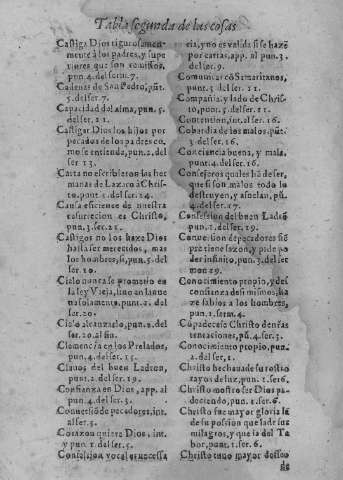 Tabla segunda de las cosas
Castiga Dios rigurosamen-
mente à los padres, y supe
riores que son remissos,
pun.4.del ser.7.
Cadenas de San Pedro, pũt
5.del ser.7.
Capacidad del alma, pun.5.
del ser.11.
Castigar Dios los hijos por
pecados de los padres co-
mo se entienda, pun.2.del
ser 13.
Carta no escribieron las her
manas de Lazaro à Chris-
to, punt.1.del ser.14.
Causa eficiente de nuestra
resurrecion es Christo,
pun.3.ser.21.
Castigos no los haze Dios
hasta ser merecidos, mas
los hombres, si, pun.5.del
ser.20.
Cielo nunca se prometio en
la ley Vieja, sino en la nue
ua solamente. punt.2.del
ser.20.
Cielo alcançado, pun.2.del
ser.20.al fin.
Clemencia en los Prelados,
pun.4.del ser.15.
Clauos del buen Ladron,
punt.2.del ser.19.
Confiança en Dios, app.al
pun.4.del ser.3.
Conuersiõ de pecadores, int.
al ser.5.
Coraçon quiere Dios, int.
y pun.1.ser.6.
Confession vocal es necessa
ria, y no es valida si se haze
por cartas, app.al pun.3.
del ser.9.
Comunicar cõ Samaritanos,
punt.3.del ser.11.
Compañia, y lado de Chris-
to, pun.5.del ser.11.
Contention, int.al ser.16.
Cobardia de los malos, pũt.
3.del ser.16.
Conciencia buena, y mala,
punt.4.del ser.16.
Consejeros quales hã de ser,
que si son malos todo lo
destruyen, y asuelan, pũ.
4.del ser.17.
Confession del buen Ladrõ
punt.2.del ser.19.
Conuersion de pecadores siẽ
pre tiene sazon, y pide po
der infinito, pun.3.del ser
mon 19.
Conocimiento propio, y des
confiança de si mismo, ha-
ze sabios a los hombres,
pun.1.serm.4.
Cõpadecese Christo de nr̃as
tentaciones, pũ.4.ser.5.
Conocimiento propio, pun.
2.del ser.1.
Christo hechaua de su rostro
rayos de luz, pun.1.ser6.
Christo mostro ser Dios pa-
deciendo, pun.1.ser.6.
Christo fue mayor gloria la
de su passion que la dr sus
milagros, y que la del Ta-
bor, punt.1.ser.6.
Christo tuuo mayor desseo
de